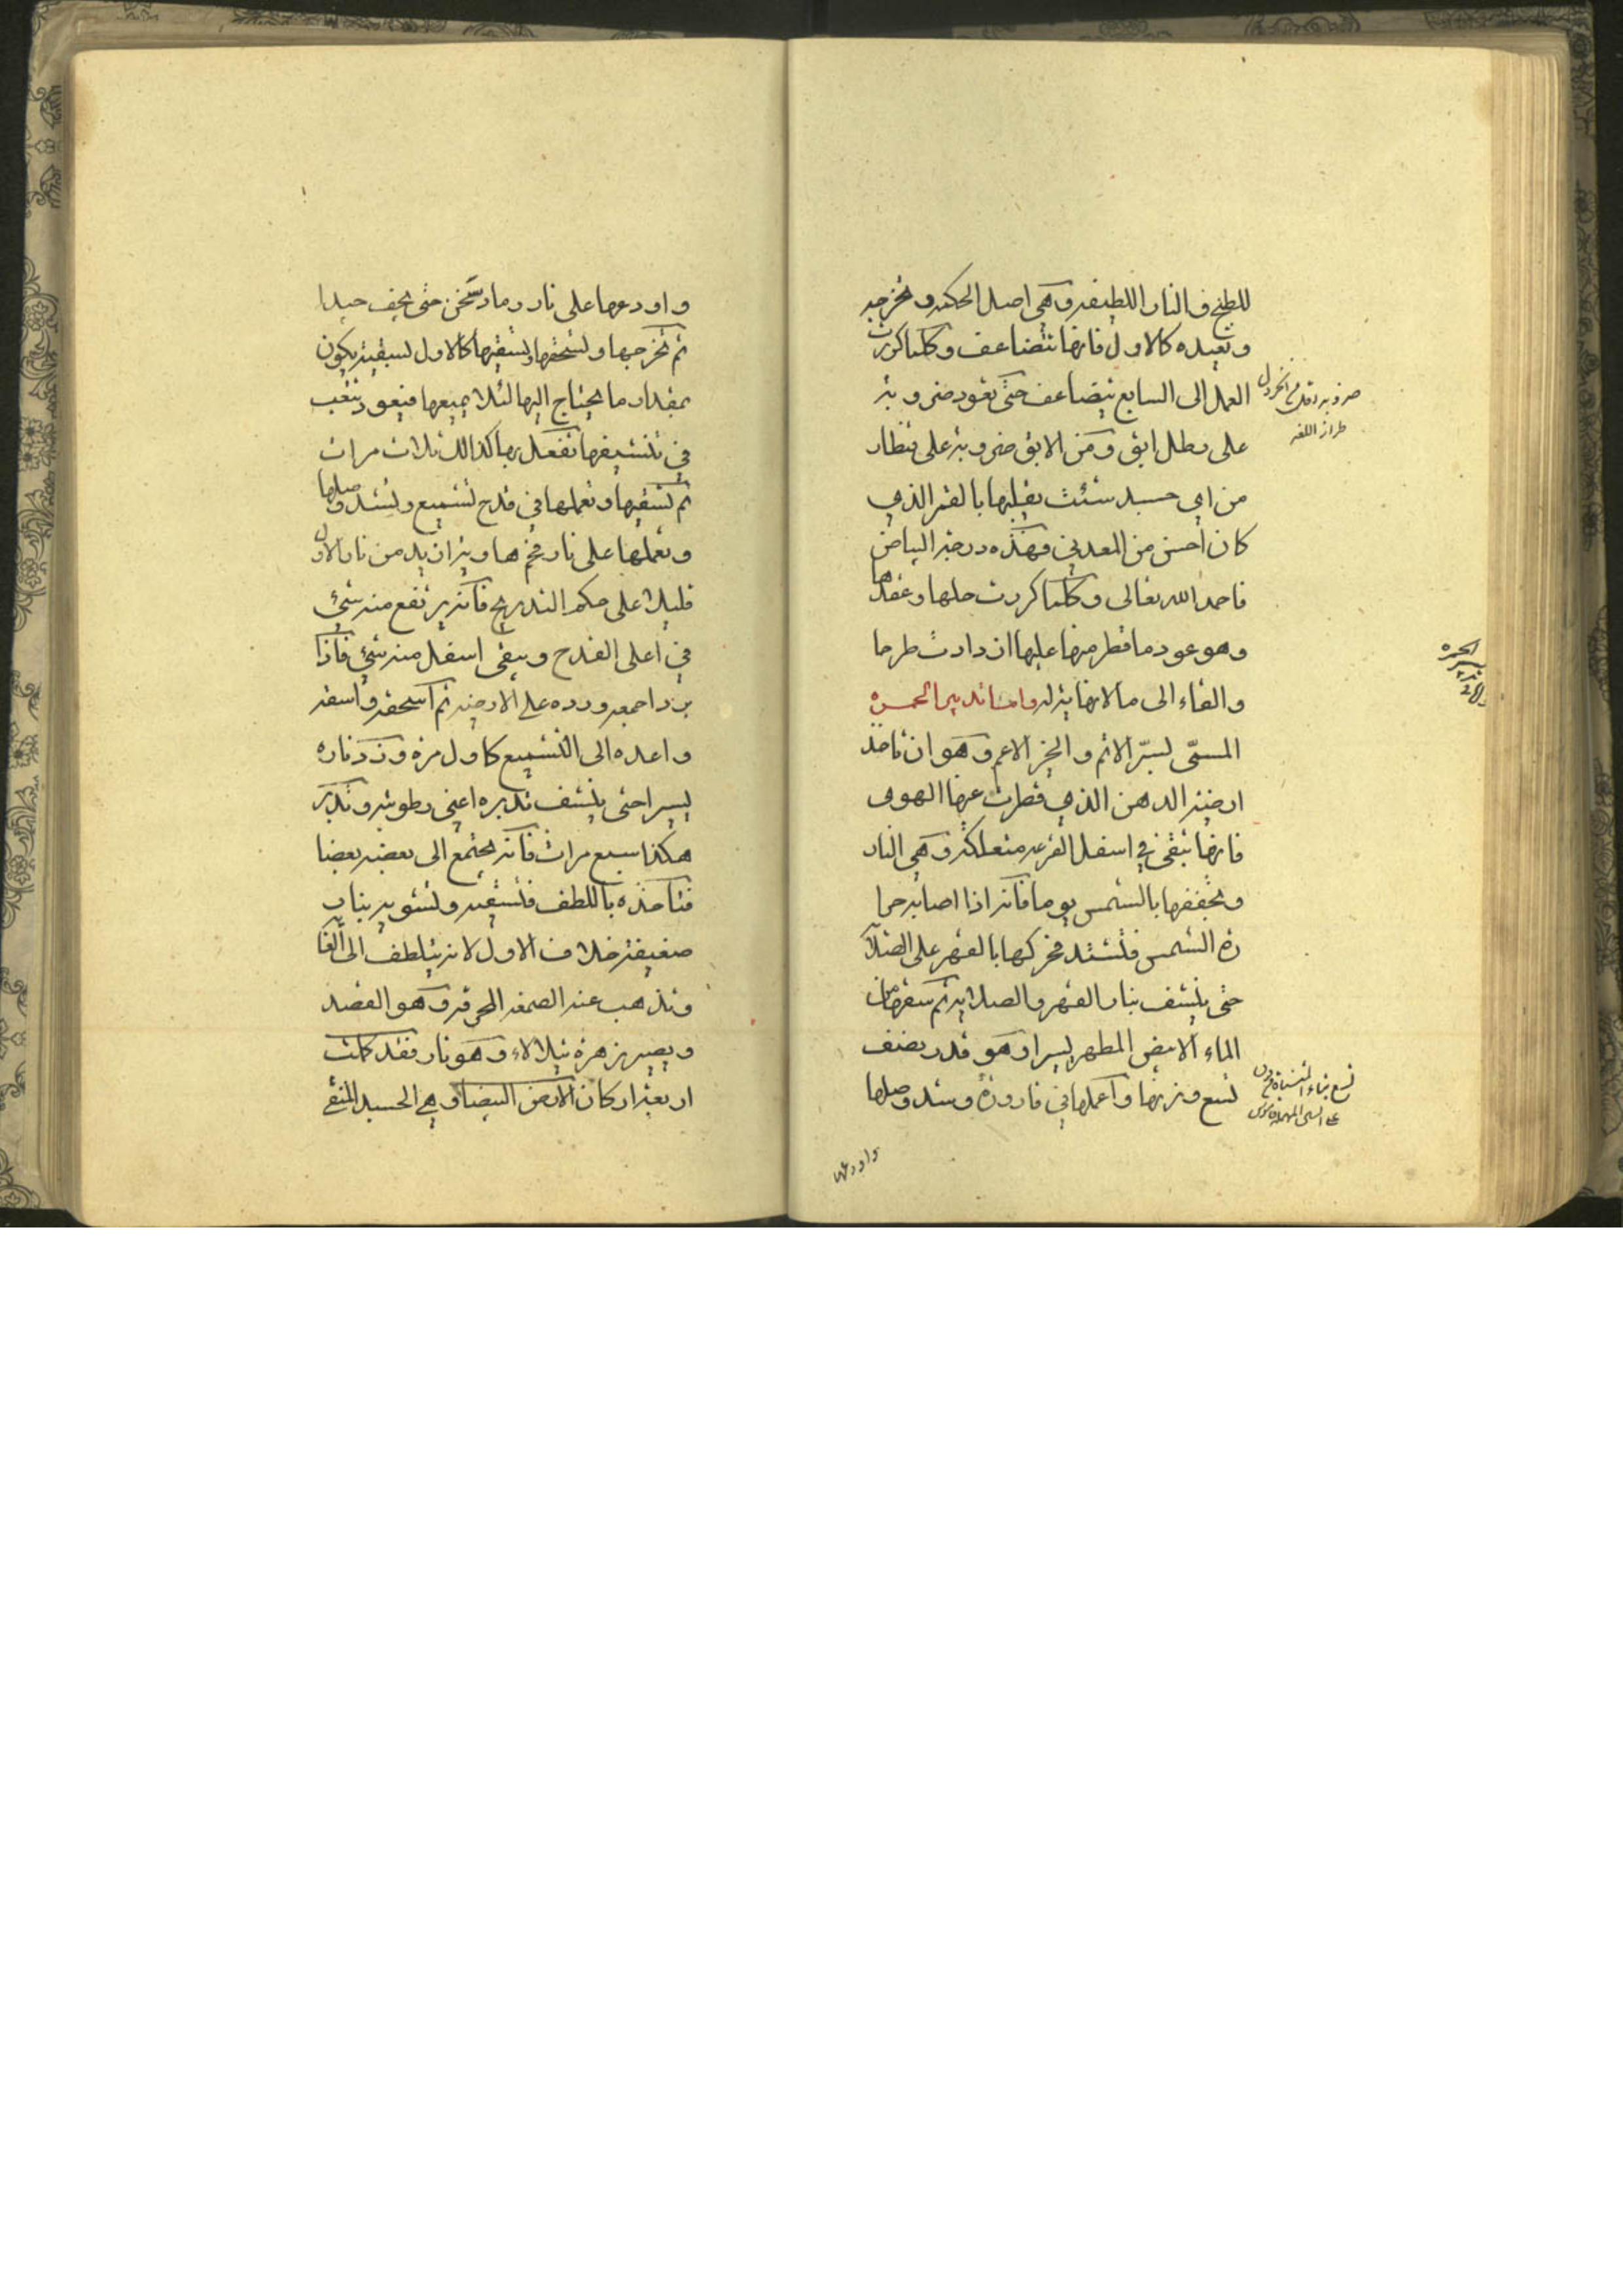 للطبخ والنار اللطيفه وهي اصل الحكمه وتخرجه
وتعيده كالاول فانها تتضاعف وكلما كررت
العمل الى السابع يتضاعف حتى تعود ضروبه
على رطل ابق ومن الابق ضروبه على قنطار
من اي جسد شئت يقلبها بالقمر الذي
كان احسن من المعدني فهذه درجة البياض
فاحمد الله تعالى وكلما كررت حلها وعقدها
وهو عود ما قطر منها عليها ازدادت طرحا
والقاء الى ما لا نهاية له واما تدبير الحمره
المسمى بسر الاثم والخز الاعم وهو ان تاخذ
ارضية الدهن الذي قطرت عنها الهوى
فانها تبقى في اسفل القرعه متعلكه وهي النار
وتجففها بالشمس يوما فانه اذا اصابه حرا
رة الشمس فتشتد فحركها بالفهر على الصلا
حتى ينشف بنار الفهر والصلايه ثم سقها من
الماء الابيض المطهر يسيرا وهو قدر نصف
تسع وزنها واعملها في قارورة وشد وصلها
واودعها
طراز اللغه
الحمره
تدبير
واودعها على نار رماد سخن حتى يجف جيدا
ثم تخرجها وتسحقها وتسقيها كالاول لسقية يكون
بمقدار ما يحتاج اليها لئلا يميعها فيعود تتعب
في تنشيفها تفعل بها كذالك ثلاث مرات
ثم تسقيها وتعملها في قدح تشميع وتشد وصلها
وتعملها على نار فخم هاوية ازيد من نار الاول
قليلا على حكم التدريج فانه يرتفع منه شئ
في اعلى القدح ويبقى اسفل منه شئ فاذا
برد اجمعه ورده على الارضيه ثم اسحقه واسقه
واعده الى التشميع كاول مرة وزد ناره
يسيرا حتى ينشف تدبره اعني رطوبته وتدبر
هكذا سبع مرات فانه يجتمع الى بعضه بعضا
فتاخذه باللطف فتسقيه وتشويه بنار
ضعيفة خلاف الاول لانه يتلطف الى الغا
وتذهب عنه الصمغه المحرقه وهو القصد
ويصير زهرة يتلالاء وهو نار فقد كملت
اربعة اركان الارض البيضا وهي الجسد المنقى